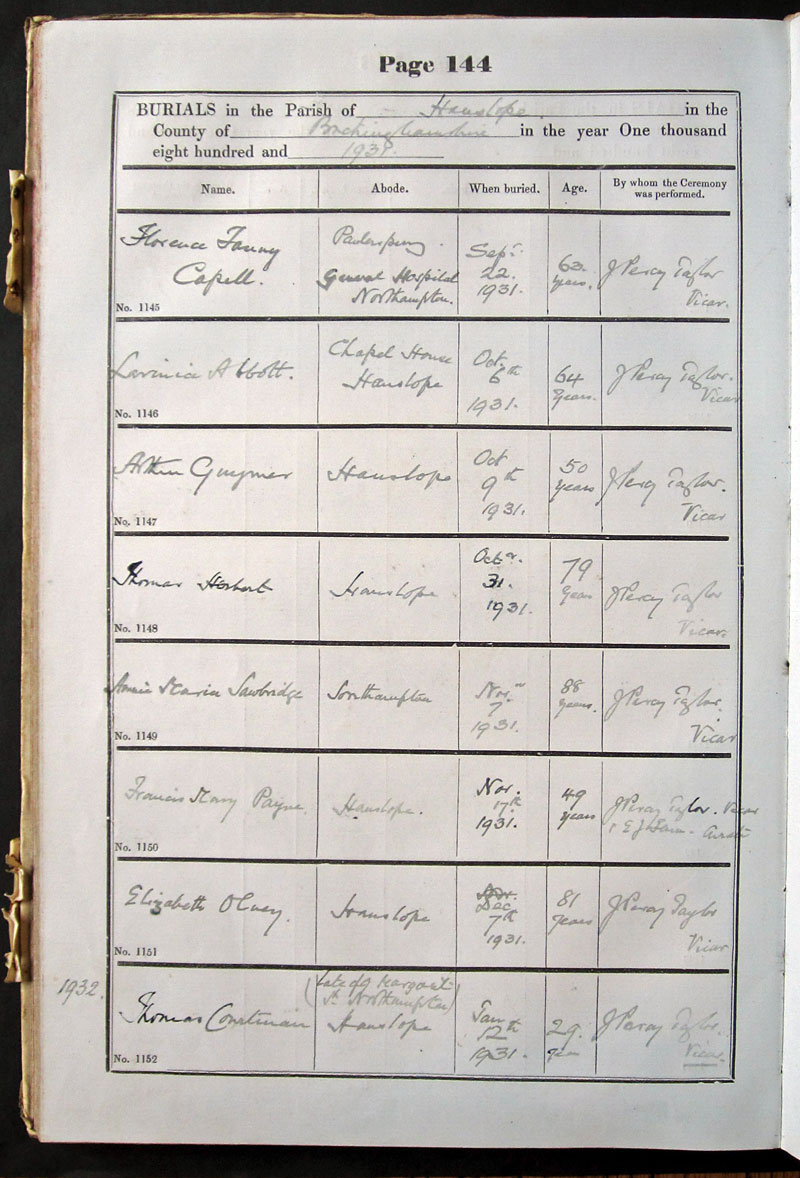 Page 144
BURIALS in the Parish of Hanslope in the
County of Buckinghamshire in the year One thousand
eight hundred and 1931.
Name. Abode. When buried. Age. By whom the Ceremony was performed.
Florence Fanny
Capell.
No. 1145
Paulerspury.
General Hospital
Northampton.
Sepr.
22.
1931.
63.
years.
J Percy Taylor
Vicar.
Lavinia Abbott.
No. 1146
Chapel House
Hanslope
Oct.
6th
1931.
64
years.
J Percy Taylor.
Vicar
Arthur Guymer
No. 1147
Hanslope
Oct
9th
1931.
50
years
J Percy Taylor.
Vicar
Thomas Herbert
No. 1148
Hanslope
Octr.
31.
1931.
79
years
J Percy Taylor
Vicar.
Annie Maria Sawbridge
No. 1149
Southampton
Nov.
7
1931.
88
years.
J Percy Taylor.
Vicar
Francis Mary Payne.
No. 1150
Hanslope.
Nov.
17th
1931.
49
years
J Percy Taylor. Vicar
Curate
Elizabeth Olney.
No. 1151
Hanslope
Dec
7th
1931.
81
years
J Percy Taylor
Vicar
1932.
Thomas Courtman
No. 1152
(Late of
St. Northampton)
Hanslope
Jan
12th
1931.
29.
years
J Percy Taylor.
Vicar.